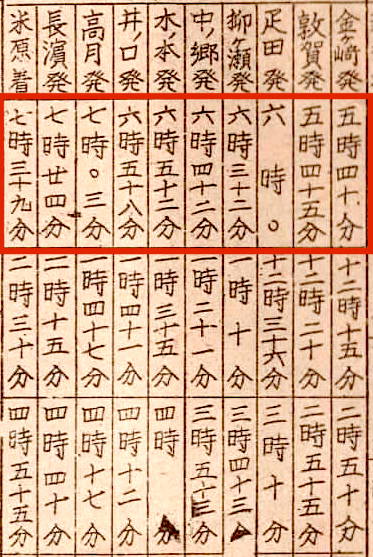 金ヶ崎発 五時四十分 十二時十五分 二時五十分
敦賀発 五時四十五分 十二時二十分 二時五十五分
疋田発 六時〇 十二時三十六分 三時十分
柳ヶ瀬発 六時三十二分 一時十分 三時四十三分
中ノ郷発 六時四十二分 一時二十一分 三時五十三分
木ノ本発 六時五十二分 一時三十五分 四時
井ノ口発 六時五十八分 一時四十一分 四時十二分
高月発 七時〇三分 一時四十七分 四時十七分
長濱発 七時廿四分 二時十五分 四時四十分
米原着 七時三十九分 二時三十分 四時五十五分